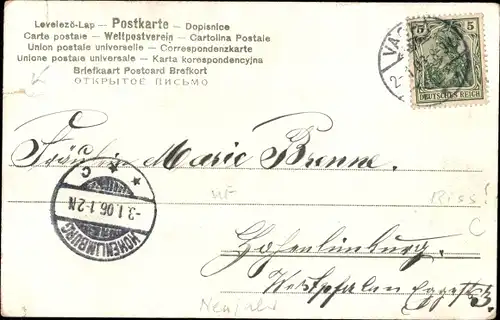 Levelező-Lap — Postkarte — Dopisnice
Carte postale — Weltpostverein — Cartolina Postale
Union postale universelle — Correspondenzkarte
Unione postale universale — Karta korespondencyjna
Briefkaart Postcard Brefkort
ОТКРЫТОЕ ПИСЬМО
5 5
DEUTSCHES REICH
Fräulein Marie Brenne.
HOHENLIMBURG
-3.1.06.1-2N
* * C
Riss!
C
Hohenlimburg.
Westphalen
Neujahr